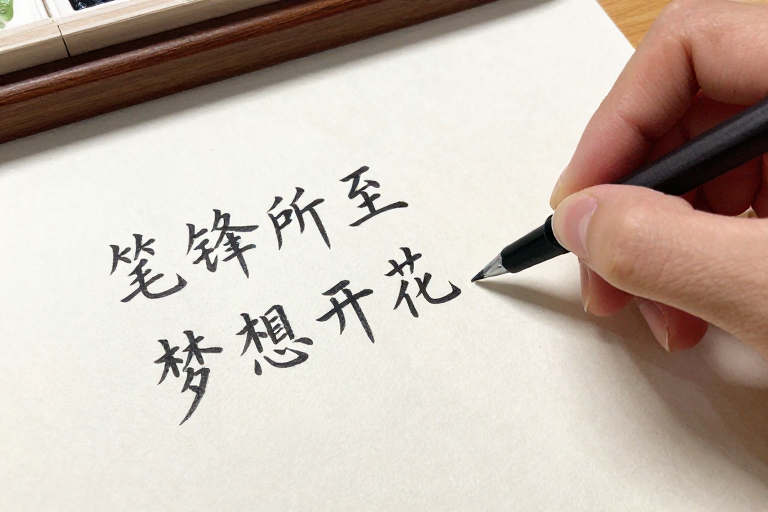 笔锋所至
梦想开花